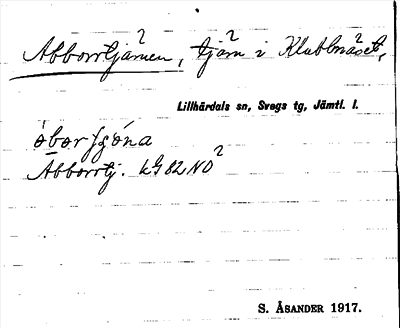 Abborrtjärnen, tjärn i Klubbnäset,
Lillhärdals sn, Svegs tg, Jämtl. l.
Abborrtj. LG 82 NO
S. ÅSANDER 1917.